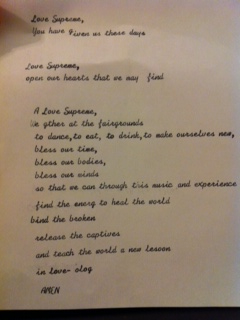 Love Supreme,
You have given us these days
Love Supreme,
open our hearts that we may find
A Love Supreme,
We gther at the fairgrounds
to dance, to eat, to drink, to make ourselves new,
bless our time,
bless our bodies,
bless our minds
so that we can through this music and experience
find the energ to heal the world
bind the broken
release the captives
and teach the world a new lesson
in love-olog
AMEN